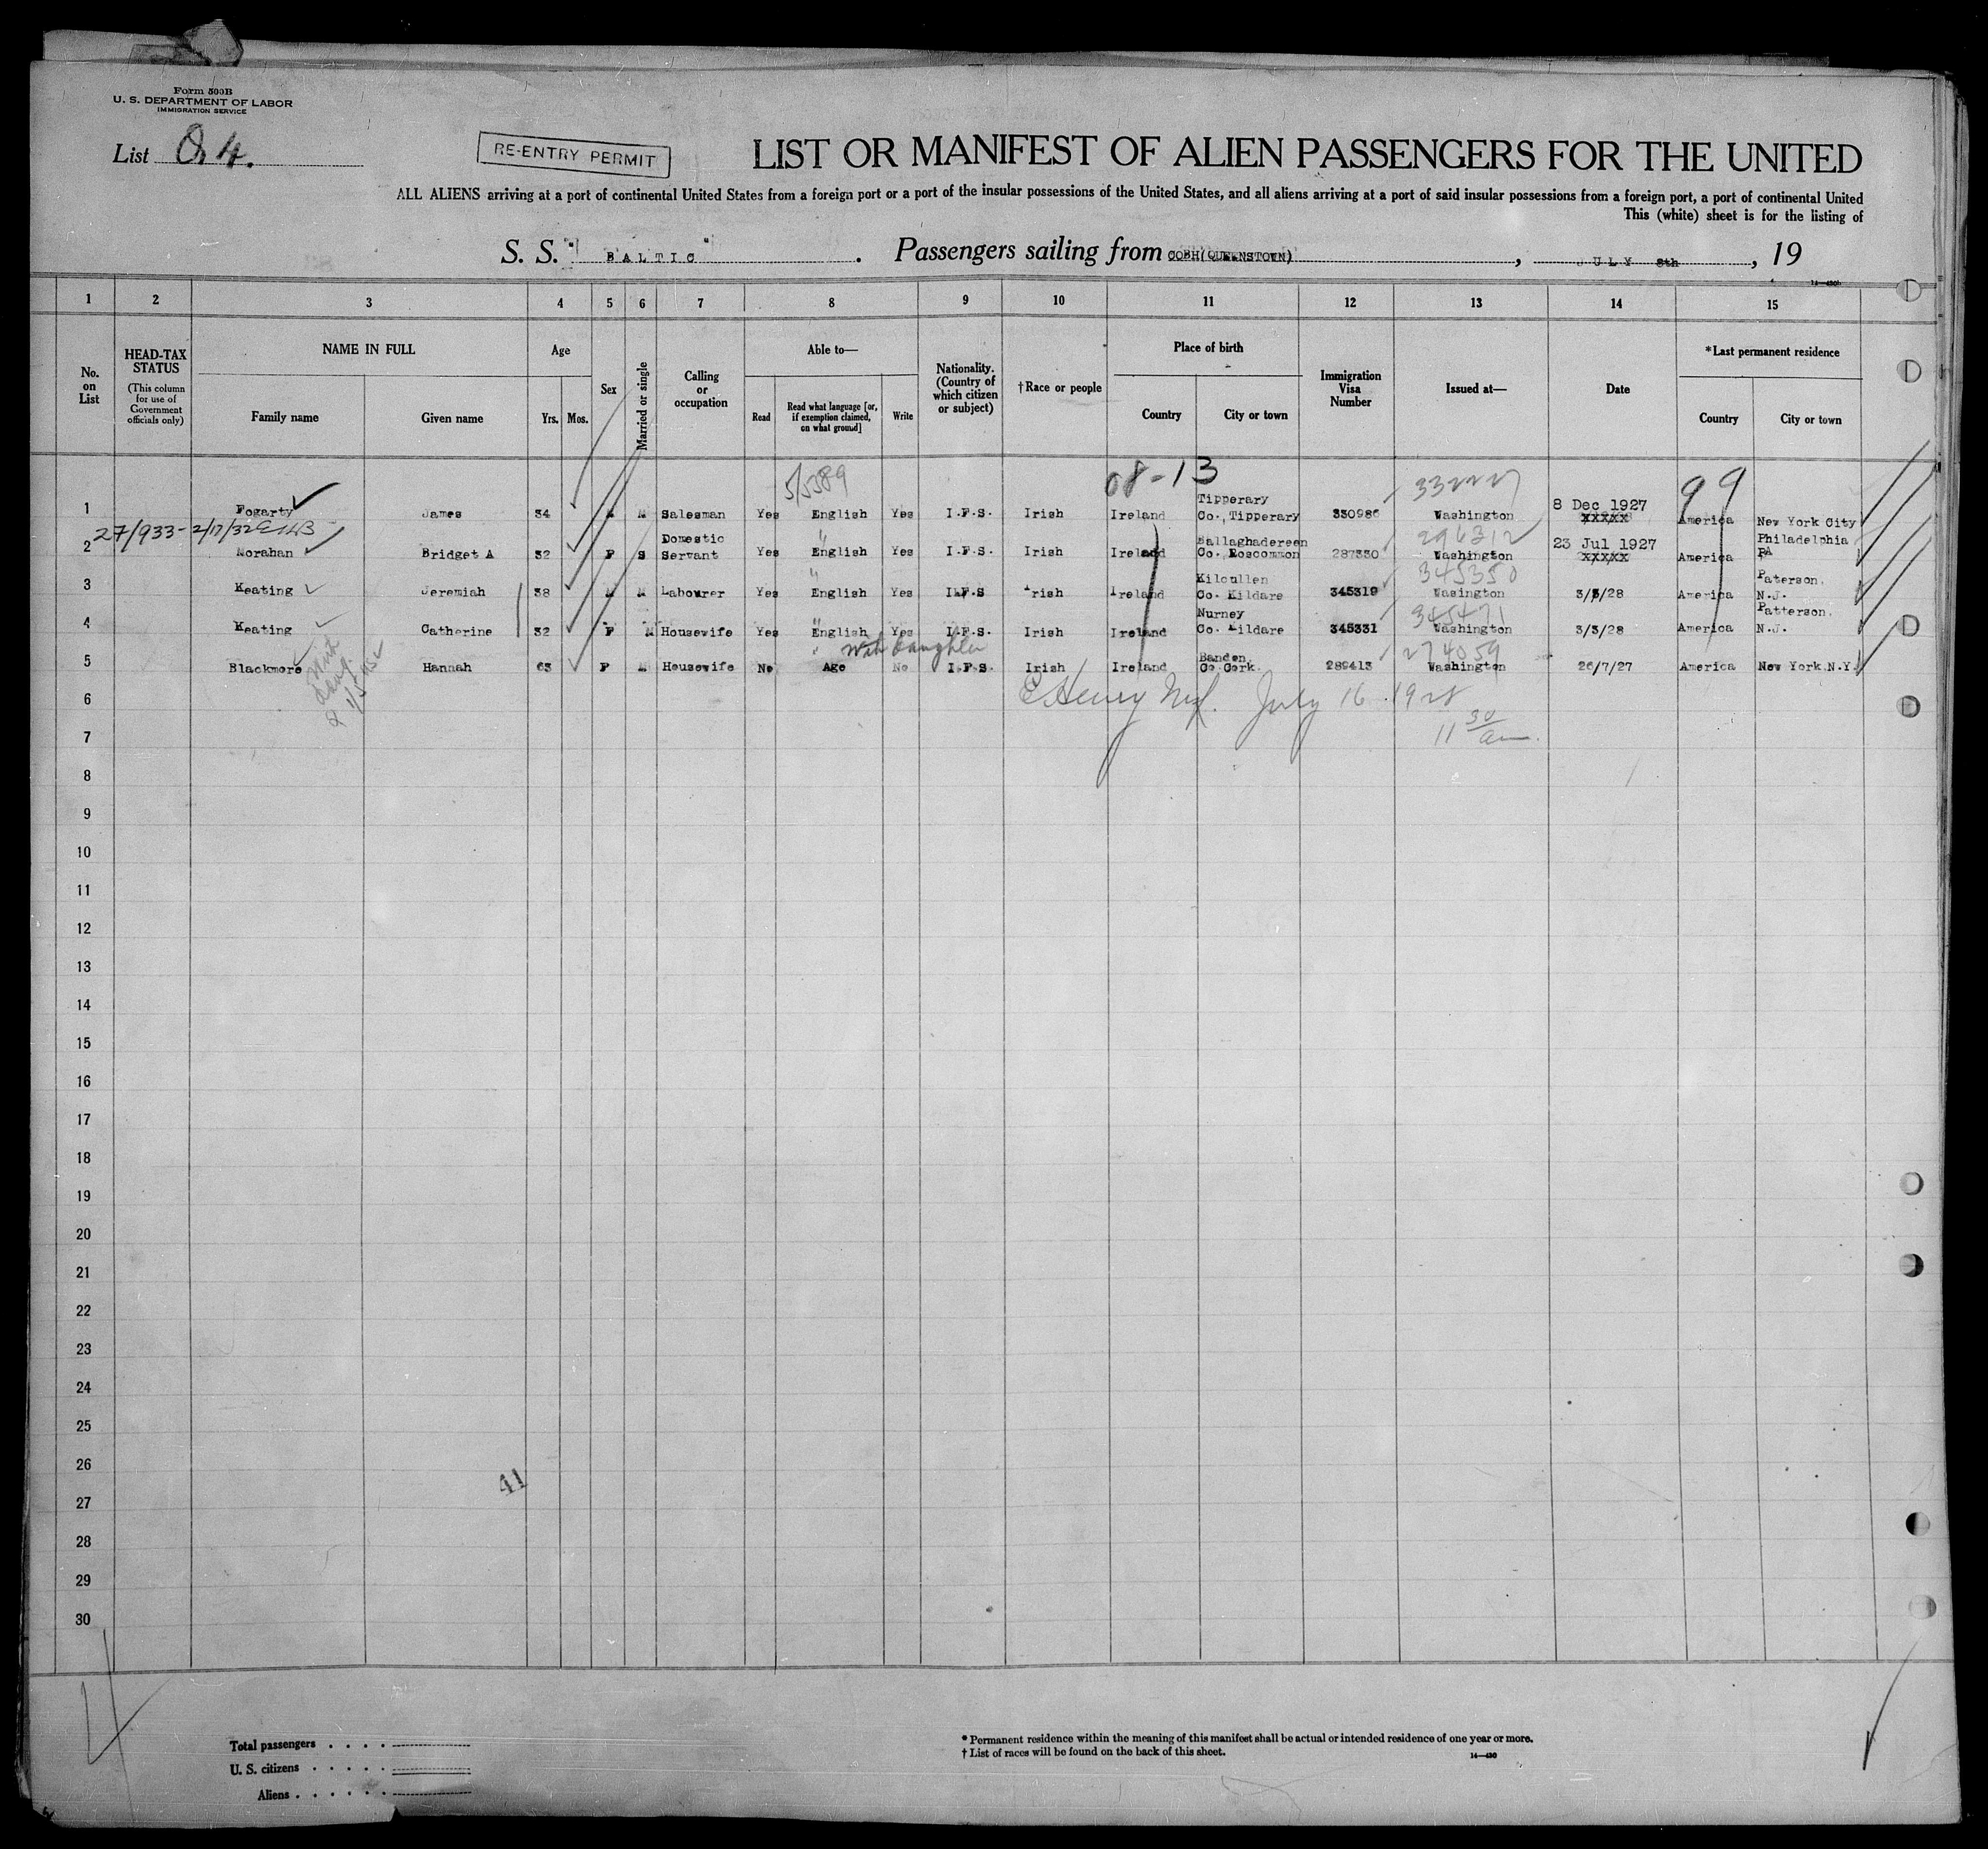 Form 500B
U. S. DEPARTMENT OF LABOR
IMMIGRATION SERVICE
List 4.
RE-ENTRY PERMIT
LIST OR MANIFEST OF ALIEN PASSENGERS FOR THE UNITED
ALL ALIENS arriving at a port of continental United States from a foreign port or a port of the insular possessions of the United States, and all aliens arriving at a port of said insular possessions from a foreign port, a port of continental United
This (white) sheet is for the listing of
S. S. " BALTIC " . Passengers sailing from COBH(QUEENSTOWN) , JULY 8th , 19
14—430b
1 2 3 4 5 6 7 8 9 10 11 12 13 14 15
No. on List
HEAD-TAX STATUS (This column for use of Government officials only)
NAME IN FULL Family name Given name
Age Yrs. Mos.
Sex
Married or single
Calling or occupation
Able to— Read Read what language [or, if exemption claimed, on what ground] Write
Nationality. (Country of which citizen or subject)
†Race or people
Place of birth Country City or town
Immigration Visa Number
Issued at—
Date
*Last permanent residence Country City or town
5/5389 08-13 99
1 Fogarty James 34 M M Salesman Yes English Yes I.F.S. Irish Ireland Tipperary Co., Tipperary 330986 Washington 8 Dec 1927 xxxxx America New York City
27/933- 2/17/32
296312
2 Morahan Bridget A 32 F S Domestic Servant Yes English Yes I.F.S. Irish Ireland Ballaghadereen Co. Roscommon 287330 Washington 23 Jul 1927 xxxxx America Philadelphia PA
345350
3 Keating Jeremiah 38 M M Labourer Yes English Yes I.F.S Irish Ireland Kilcullen Co. Kildare 345319 Wasington 3/3/28 America Paterson. N.J.
345471
4 Keating Catherine 32 F M Housewife Yes English Yes I.F.S. Irish Ireland Nurney Co. Kildare 345331 Washington 3/3/28 America Patterson. N.J.
With daughter
274059
5 Blackmore Hannah 63 F M Housewife No Age No I.F.S. Irish Ireland Bandon Co Cork 289413 Washington 26/7/27 America New York.N.Y.
6
Henry July 16 1928
7
11 30 am.
8
9
10
11
12
13
14
15
16
17
18
19
20
21
22
23
24
25
26
41
27
28
29
30
Total passengers
U. S. citizens
Aliens
* Permanent residence within the meaning of this manifest shall be actual or intended residence of one year or more.
† List of races will be found on the back of this sheet. 14—430